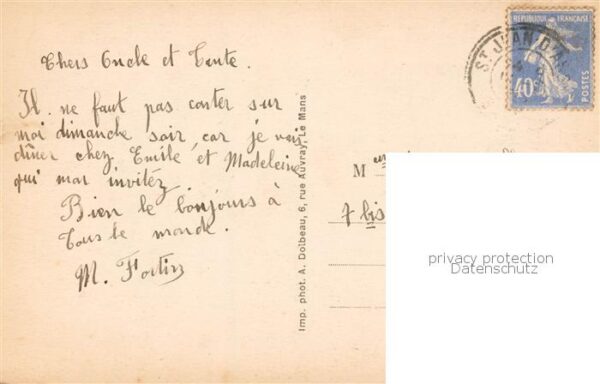 Chers Oncle et Tante.
Il ne faut pas conter sur
moi dimanche soir car je vais
dîner chez Emile et Madeleine
qui mas invitéz
Bien le bonjours à
Tous le monde.
M. Fortin
Imp. phot. A. Dolbeau, 6, rue Auvray, Le Mans
REPUBLIQUE FRANÇAISE
40c
POSTES
ST JEAN D'A
M
7 bis
privacy protection
Datenschutz